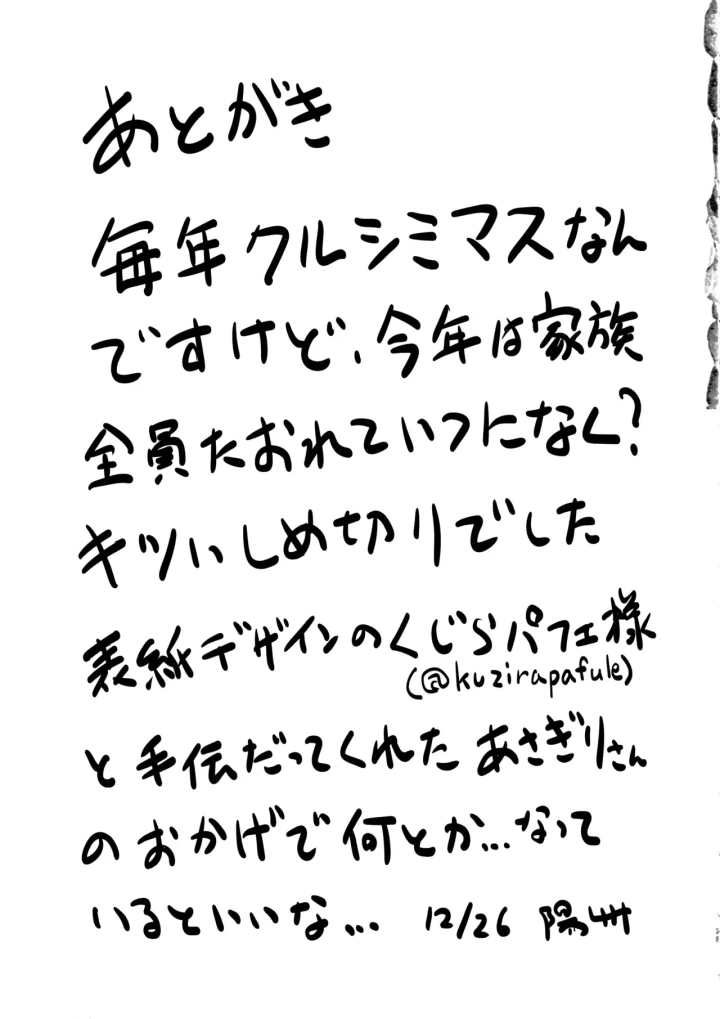 あとがき
毎年クルシミマスなん
ですけど、今年は家族
全員たおれていつになく?
キツいしめ切りでした
表紙デザインのくじらパフェ様
(@kuzirapafule)
と手伝だってくれたあさぎりさん
のおかげで何とか…なって
いるといいな… 12/26 陽州